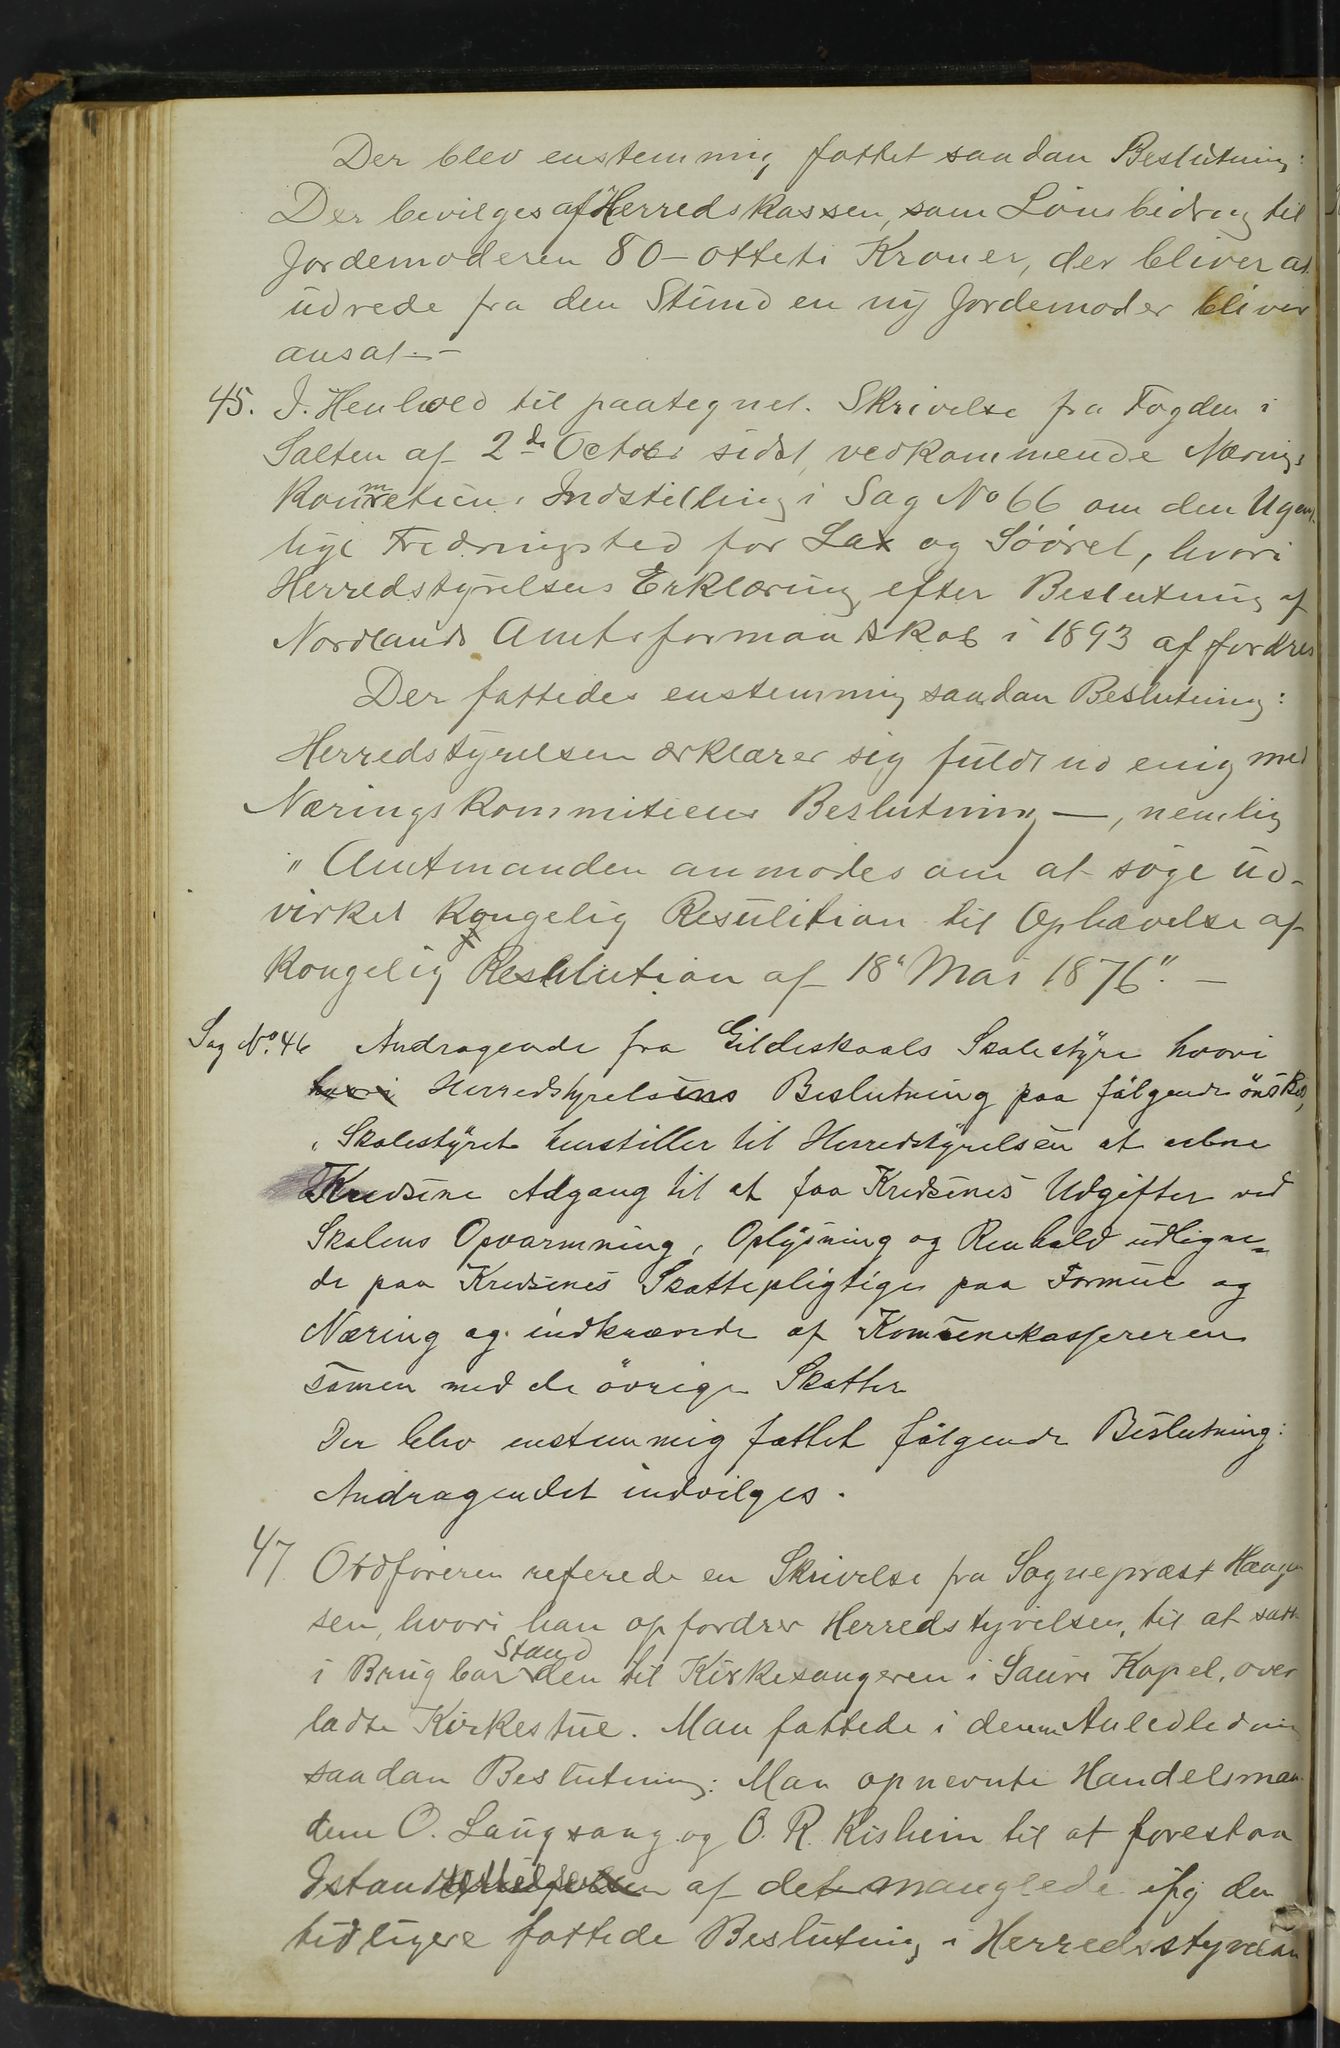 Der blev enstemmig fattet saadan Beslutning:
Der bevilges af Herredskassen, som Lönsbidrag til
Jordemoderen 80 - otteti Kroner, der bliver at
udrede fra den Stund en ny Jordemoder bliver
ansat. -
45. I. Henhold til paategnet. Skrivelse fra Fogden i
Salten af 2de October sidst, vedkommende Nærings
Indstilling i Sag No 66 om den Ugent-
lige Fredningsted for Lax og Sööret, hvori
Herredstyrelsens Erklæring efter Beslutning af
Nordlands Amtsformandskab i 1893 affordres
Der fattedes enstemmig saadan Beslutning:
Herredstyrelsen erklærer sig fuldt ud enig med
Næringskommitieens Beslutning —, nemlig
" Amtmanden anmodes om at söge ud-
virket kongelig Resulition til Ophævelse af
kongelig Reslution af 18' Mai 1876". —
Sag No. 46 Andragende fra Gildeskaals Skolestyre hvori
Herredstyrelsens Beslutning paa fölgende önskes,
" Skolestyret henstiller til Herredstyrelsen at aabne
Kredsene Adgang til at faa Kredsenes Udgifter ved
Skolens Opvarmning, Oplysning og Renhold udligne=
de paa Kredsenes Skattepligtige paa Formue og
Næring og indkrævede af Komunekassereren
samen med de övrige Skatter
Der blev enstemmig fattet fölgende Beslutning:
Andragendet indvilges.
47 Ordföreren referede en Skrivelse fra Sognepræst Haagen
sen, hvori han opfordrer Herredstyrelsen, til at sætte
i Brugbar Stand den til Kirkesangeren i Saura Kapel, over
ladte Kirkestue. Man fattede i denne Anledledning
saadan Beslutning: Man opnevnte Handelsmæn-
dene O. Langsang og O. R. Kishein til at forestaa
Istandsættelsen af det manglede ifg den
tidligere fattede Beslutning i Herredsstyrelsen